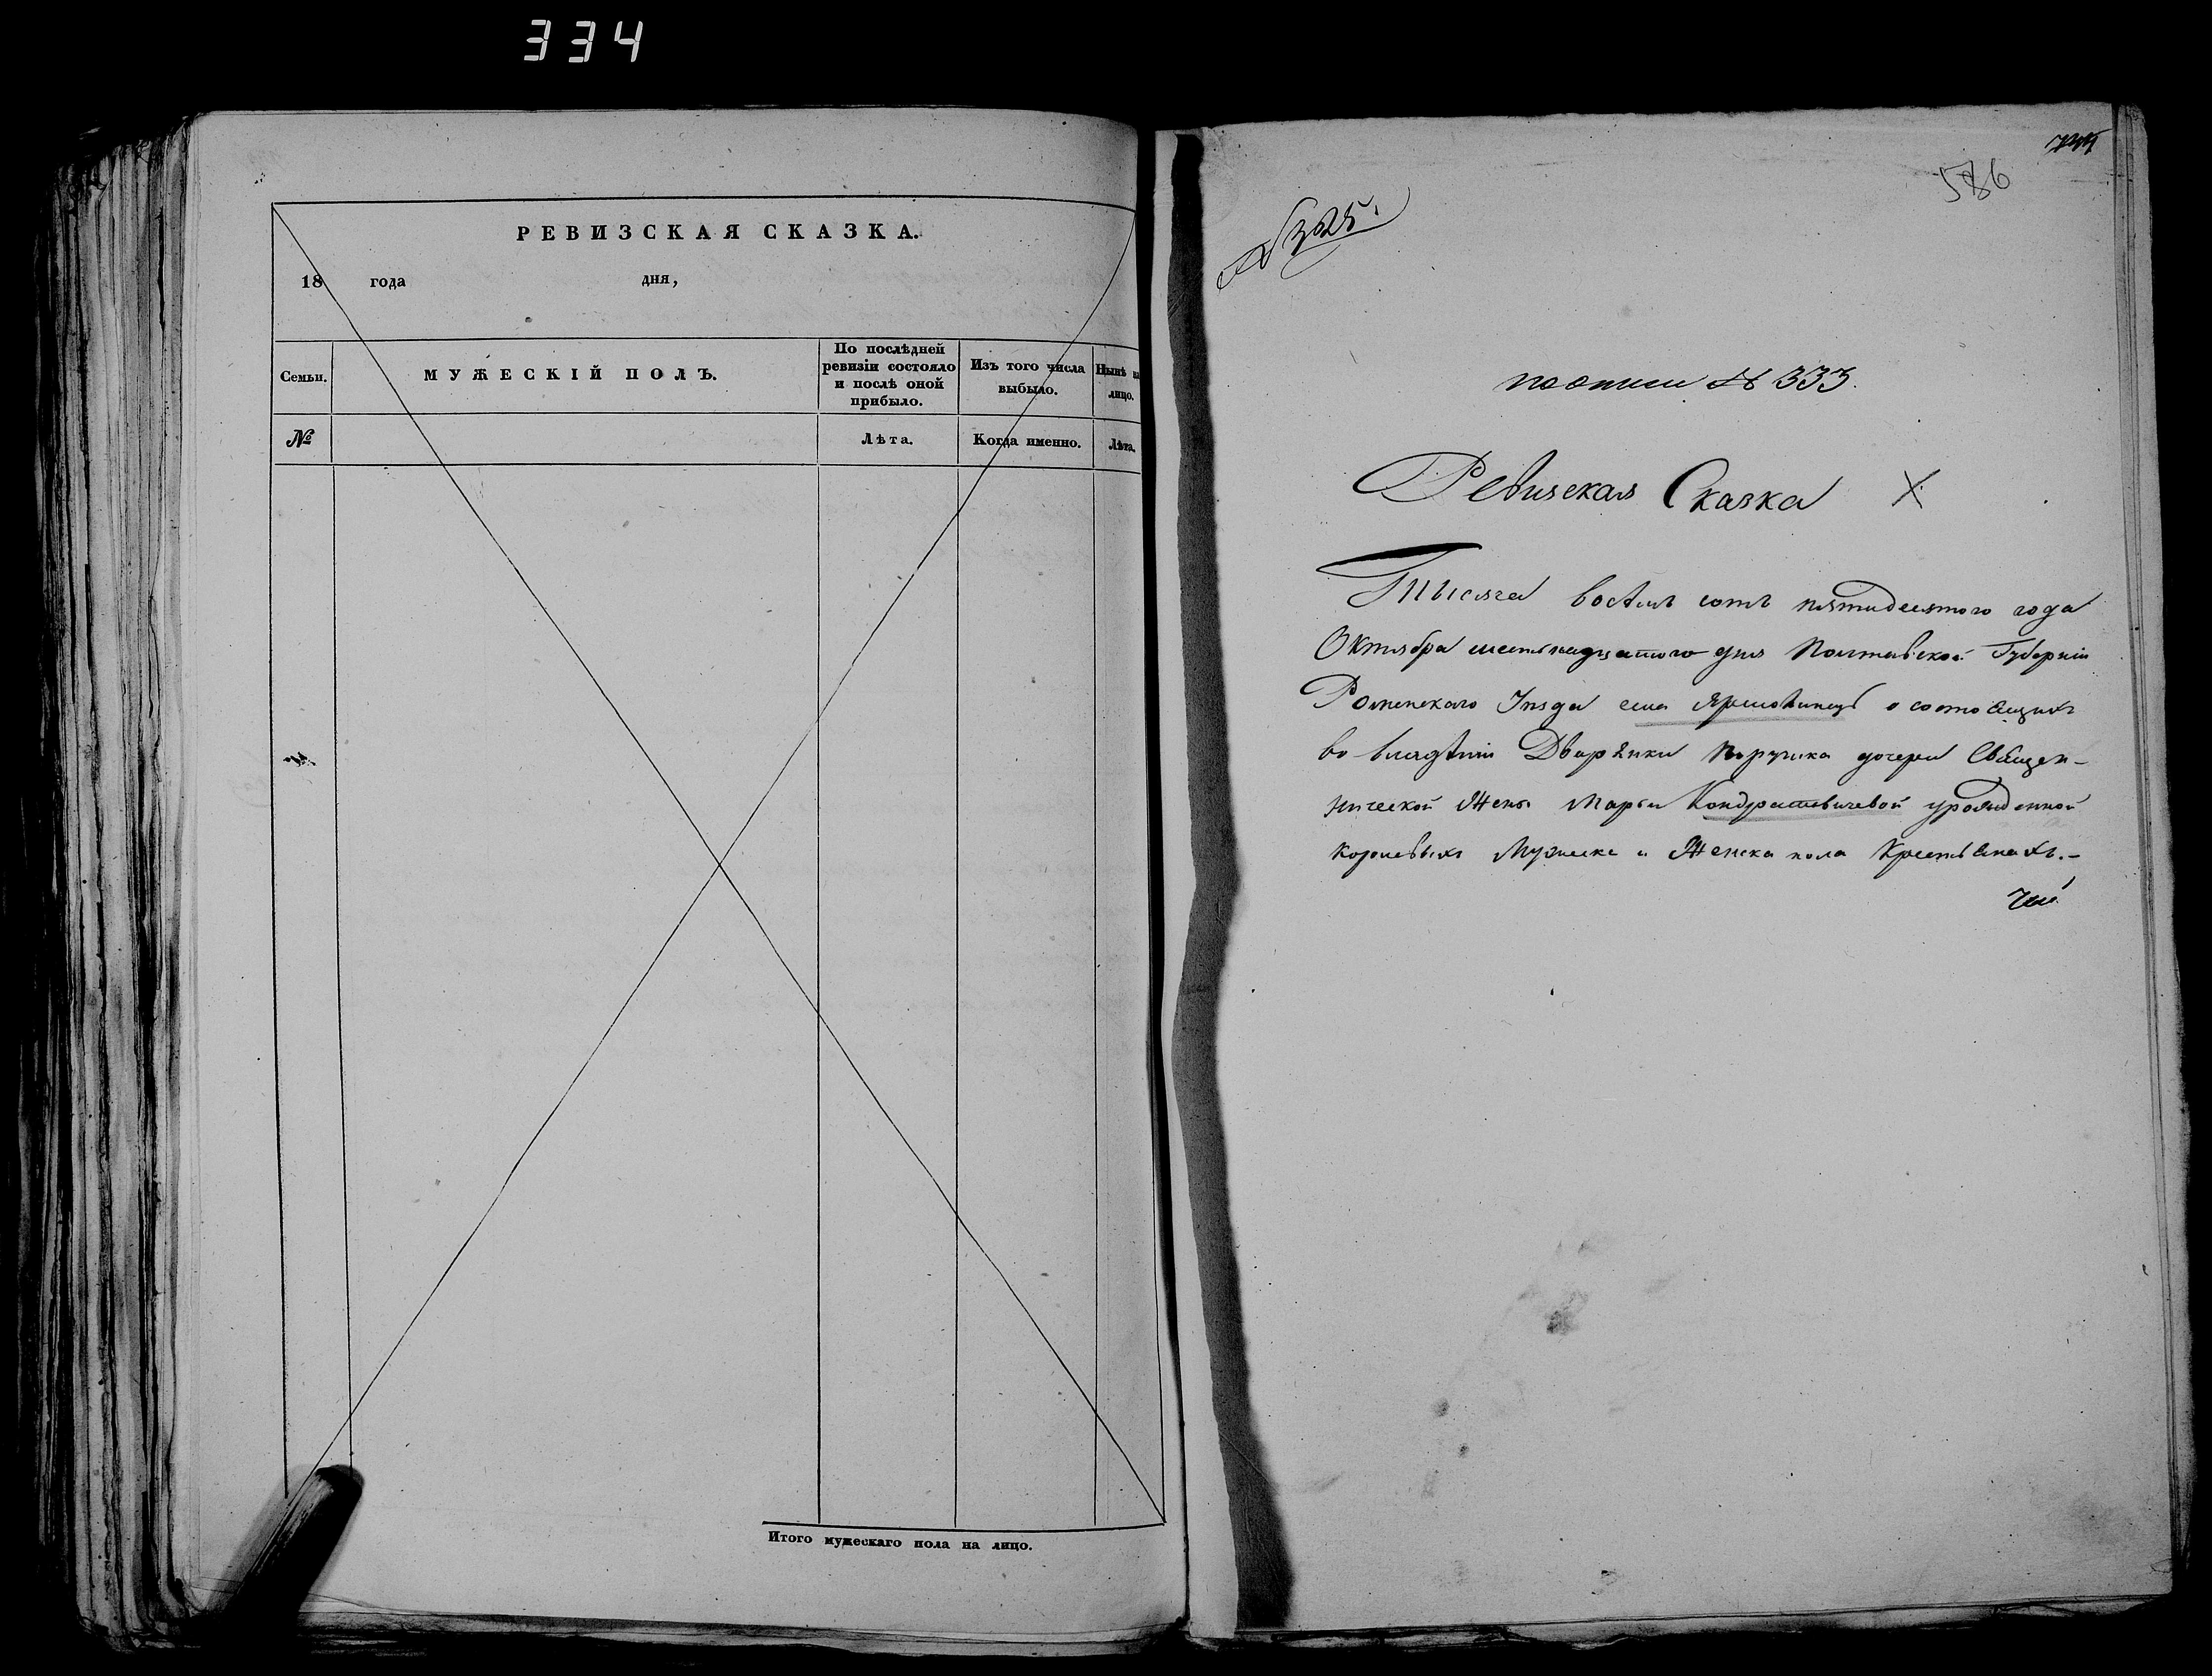 334
РЕВИЗСКАЯ СКАЗКА.
18 года дня,
Семьи.
МУЖЕСКІЙ ПОЛЪ.
По послѣдней
ревизіи состояло
и послѣ оной
прибыло.
Изъ того числа
выбыло.
Нынѣ на
лицо.
№
Лѣта.
Когда именно.
Лѣта.
Итого мужескаго пола на лицо.
586
№ 325.
по описи № 333.
Ревизская Сказка
Тысяча восемь сотъ пятидесятого года
Октября шестьнадцатого дня Полтавской Губерніи
Роменскаго Уезда села Ярмолинецъ о состоящихъ
во владѣніи Дворянки Поручика дочери Священ-
нической Жены Марьи Кондратовичевой урожденной
Корсевыхъ Мужеска и Женска пола Крестьянахъ.-